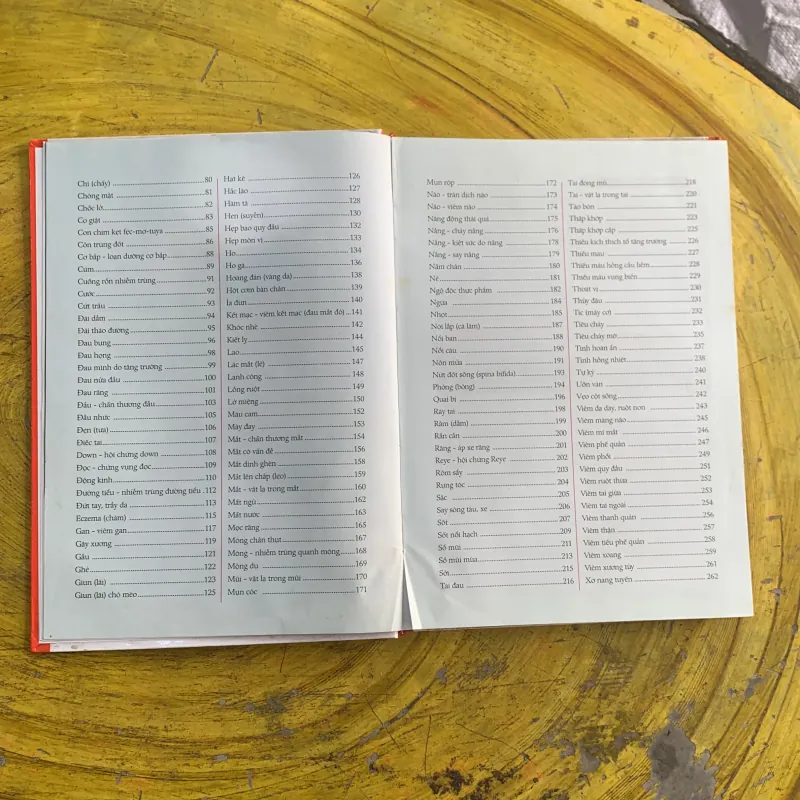 Chí (chấy) 80
Chóng mặt 81
Chốc lở 82
Co giật 83
Con chim kẹt fec-mơ-tuya 85
Côn trùng đốt 86
Cơ bắp - loạn dưỡng cơ bắp 88
Cúm 89
Cuống rốn nhiễm trùng 91
Cước 92
Cứt trâu 93
Đái dầm 94
Đái tháo đường 95
Đau bụng 96
Đau họng 98
Đau mình do tăng trưởng 99
Đau nửa đầu 100
Đau răng 101
Đầu - chấn thương đầu 103
Đầu nhức 105
Đẹn (tưa) 106
Điếc tai 107
Down - hội chứng down 108
Độc - chứng vụng đọc 109
Động kinh 110
Đường tiểu - nhiễm trùng đường tiểu 112
Đứt tay, trầy da 113
Eczema (chàm) 115
Gan - viêm gan 117
Gãy xương 119
Gầu 121
Ghẻ 122
Giun (lãi) 123
Giun (lãi) chó mèo 125
Hạt kê 126
Hắc lào 127
Hăm tã 128
Hen (suyễn) 130
Hẹp bao quy đầu 132
Hẹp môn vị 133
Ho 134
Ho gà 136
Hoàng đản (vàng da) 138
Hột cơm bàn chân 139
Ỉa đùn 140
Kết mạc - viêm kết mạc (đau mắt đỏ) 141
Khóc nhè 142
Kiết lỵ 144
Lao 145
Lác mắt (lé) 147
Lạnh cóng 148
Lồng ruột 149
Lở miệng 150
Máu cam 152
Mày đay 153
Mắt - chấn thương mắt 154
Mắt có vấn đề 156
Mắt dính ghèn 158
Mắt lên chắp (lẹo) 159
Mắt - vật lạ trong mắt 160
Mất ngủ 162
Mất nước 163
Mọc răng 165
Móng chân thụt 167
Móng - nhiễm trùng quanh móng 168
Mộng du 169
Mũi - vật lạ trong mũi 170
Mụn cóc 171
Mụn rộp 172
Não - tràn dịch não 173
Não - viêm não 174
Năng động thái quá 175
Nắng - cháy nắng 176
Nắng - kiệt sức do nắng 178
Nắng - say nắng 179
Nấm chân 180
Nẻ 181
Ngộ độc thực phẩm 182
Ngứa 184
Nhọt 185
Nói lắp (cà lăm) 187
Nổi ban 188
Nổi cáu 190
Nôn mửa 191
Nứt đốt sống (spina bifida) 193
Phỏng (bỏng) 194
Quai bị 196
Ráy tai 198
Rằm (dằm) 199
Rắn cắn 200
Răng - áp se răng 201
Reye - hội chứng Reye 202
Rôm sảy 203
Rụng tóc 204
Sặc 205
Say sóng tàu, xe 206
Sốt 207
Sốt nổi hạch 209
Sổ mũi 211
Sổ mũi mùa 213
Sởi 215
Tai đau 216
Tai đọng mủ 218
Tai - vật lạ trong tai 220
Táo bón 221
Thấp khớp 223
Thấp khớp cấp 225
Thiếu kích thích tố tăng trưởng 226
Thiếu máu 227
Thiếu máu hồng cầu liềm 228
Thiếu máu vùng biển 229
Thoát vị 230
Thủy đậu 231
Tic (máy cơ) 232
Tiêu chảy 233
Tiêu chảy mỡ 235
Tinh hoàn ẩn 237
Tinh hồng nhiệt 238
Tự kỷ 240
Uốn ván 241
Vẹo cột sống 242
Viêm dạ dày, ruột non 243
Viêm màng não 245
Viêm mí mắt 246
Viêm phế quản 247
Viêm phổi 249
Viêm quy đầu 251
Viêm ruột thừa 252
Viêm tai giữa 253
Viêm tai ngoài 254
Viêm thanh quản 256
Viêm thận 257
Viêm tiểu phế quản 258
Viêm xoang 259
Viêm xương tủy 261
Xơ nang tuyến 262